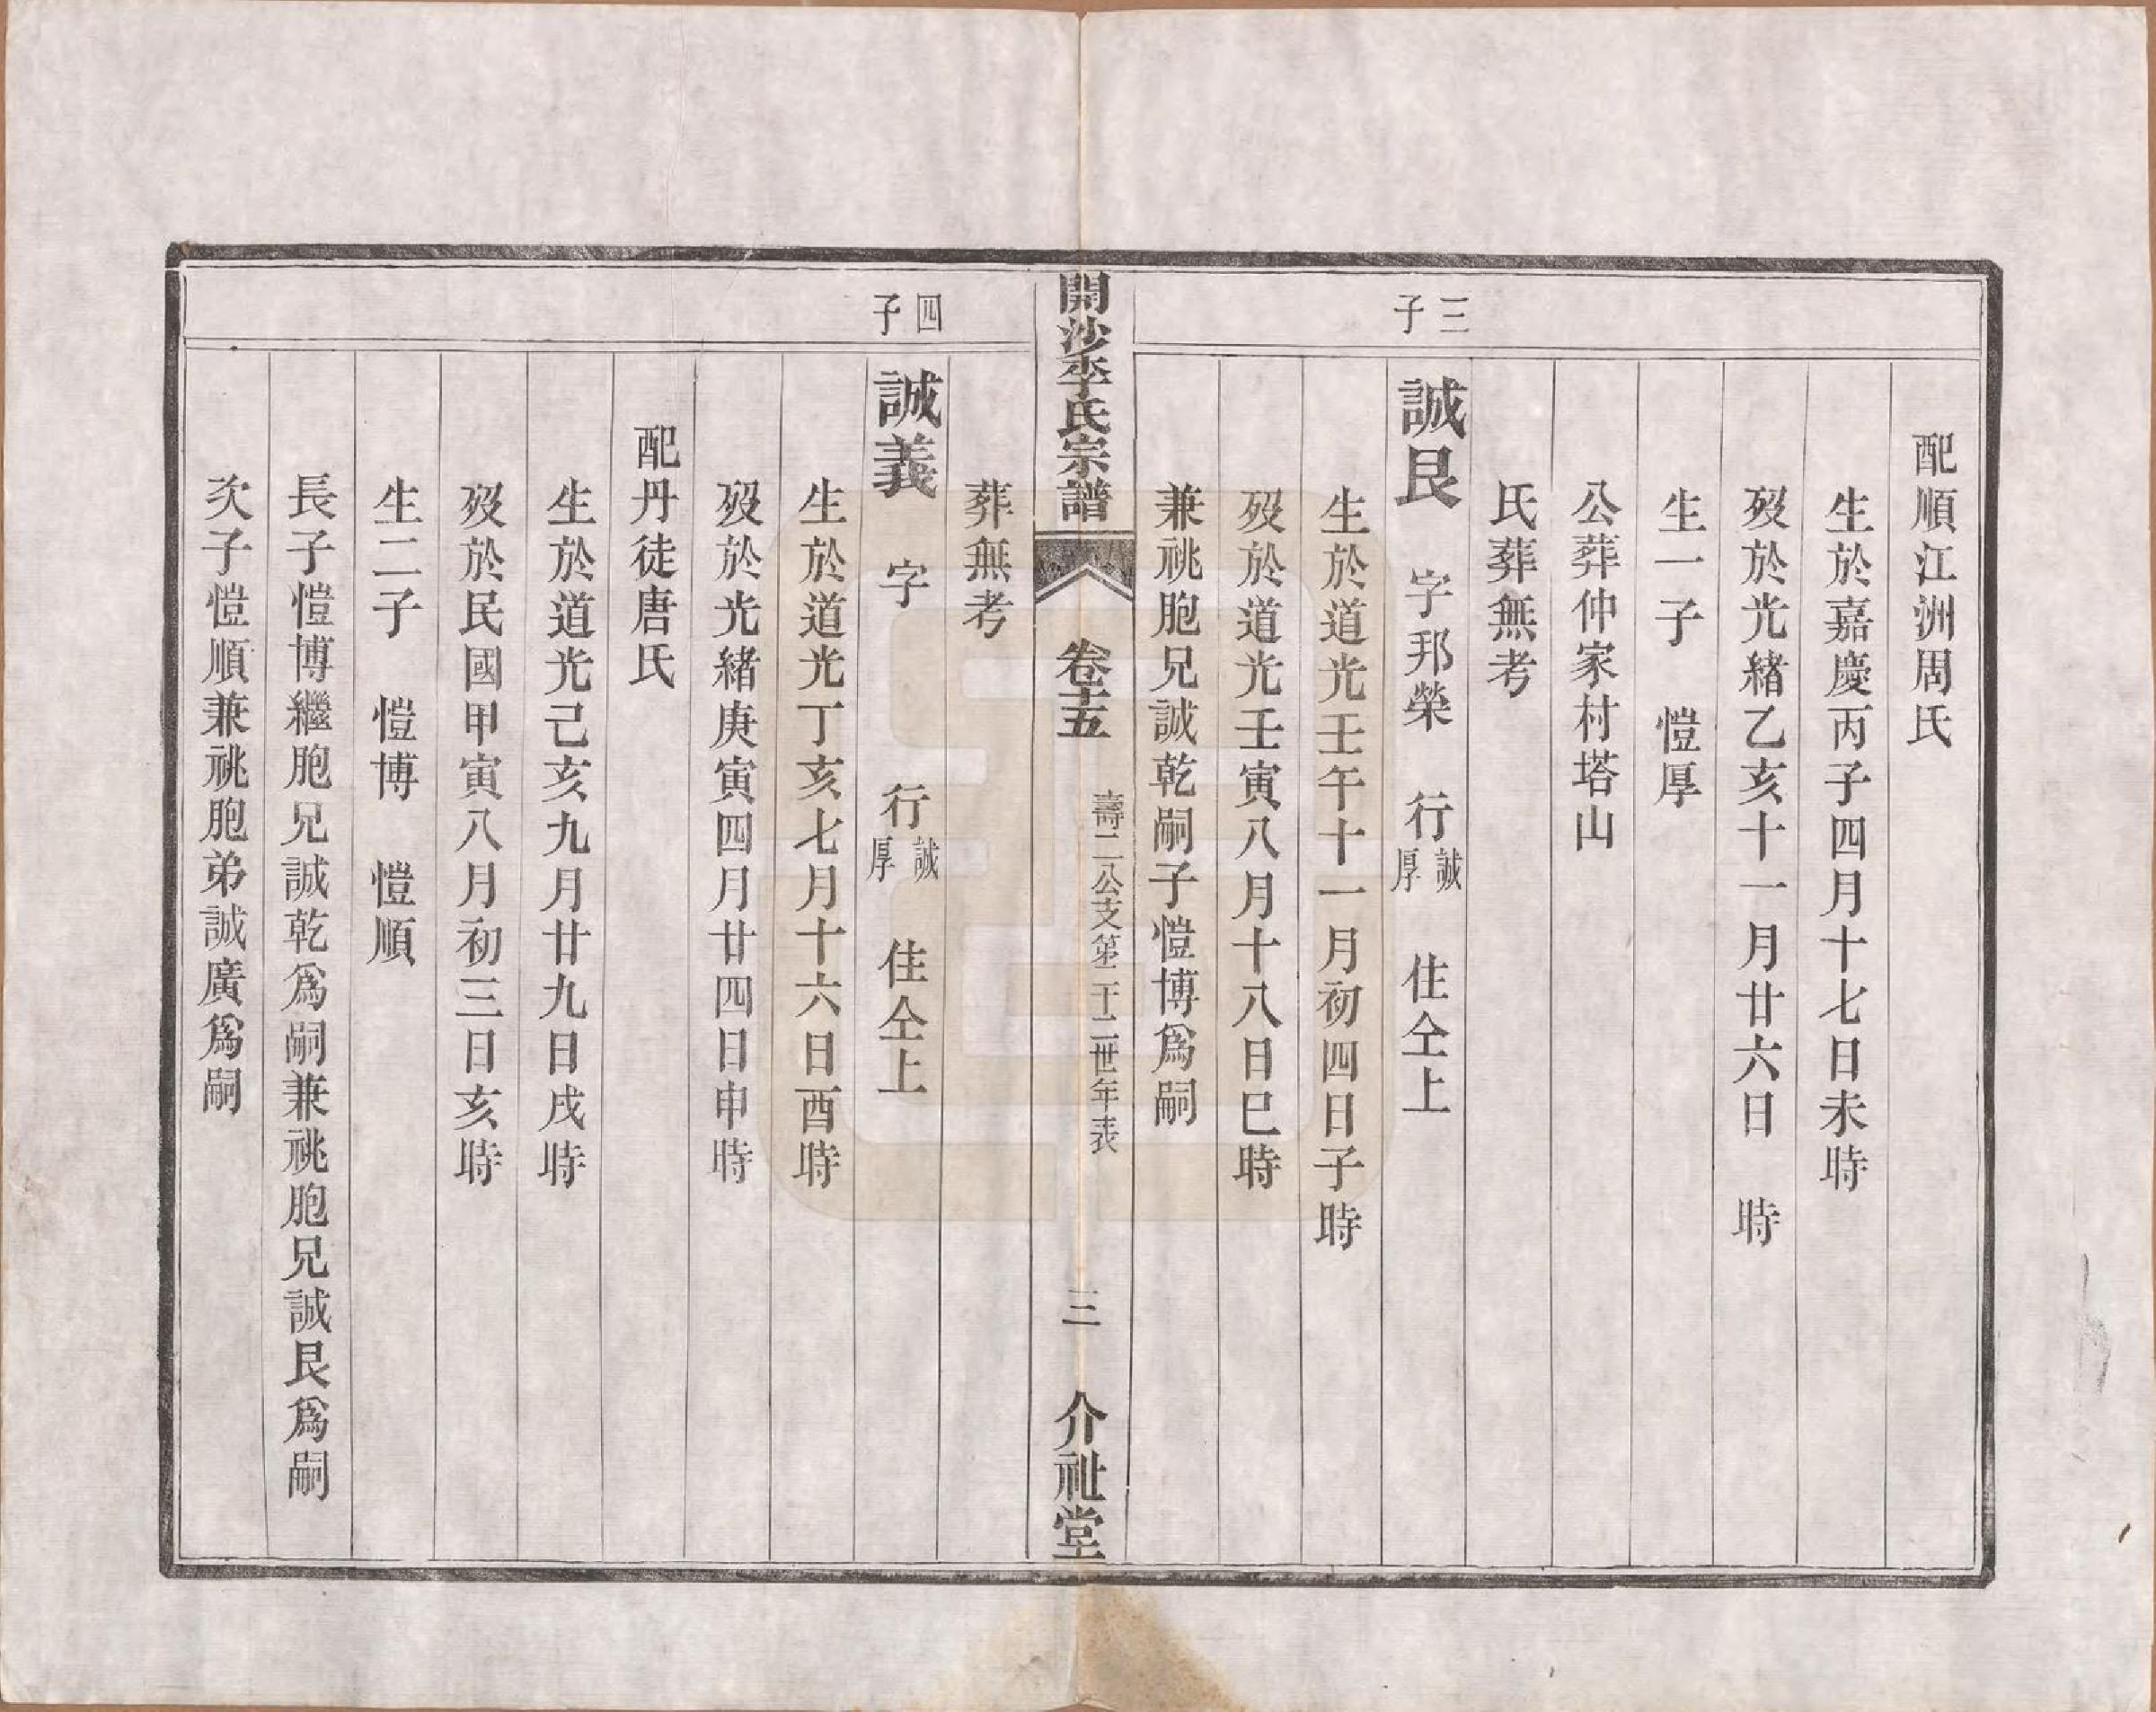 配順江洲周氏
生於嘉慶丙子四月十七日未時
歿於光緒乙亥十一月廿六日　時
生一子　愷厚
公葬仲家村塔山
氏葬無考
三子
誠艮　字邦榮　行誠厚　住仝上
生於道光壬午十一月初四日子時
歿於道光壬寅八月十八日巳時
兼祧胞兄誠乾嗣子愷博爲嗣
開沙李氏宗譜　卷十五　壽二公支第二十二世年表　三　介祉堂
葬無考
四子
誠義　字　行誠厚　住仝上
生於道光丁亥七月十六日酉時
歿於光緒庚寅四月廿四日申時
配丹徒唐氏
生於道光己亥九月廿九日戌時
歿於民國甲寅八月初三日亥時
生二子　愷博　愷順
長子愷博繼胞兄誠乾爲嗣兼祧胞兄誠艮爲嗣
次子愷順兼祧胞弟誠廣爲嗣